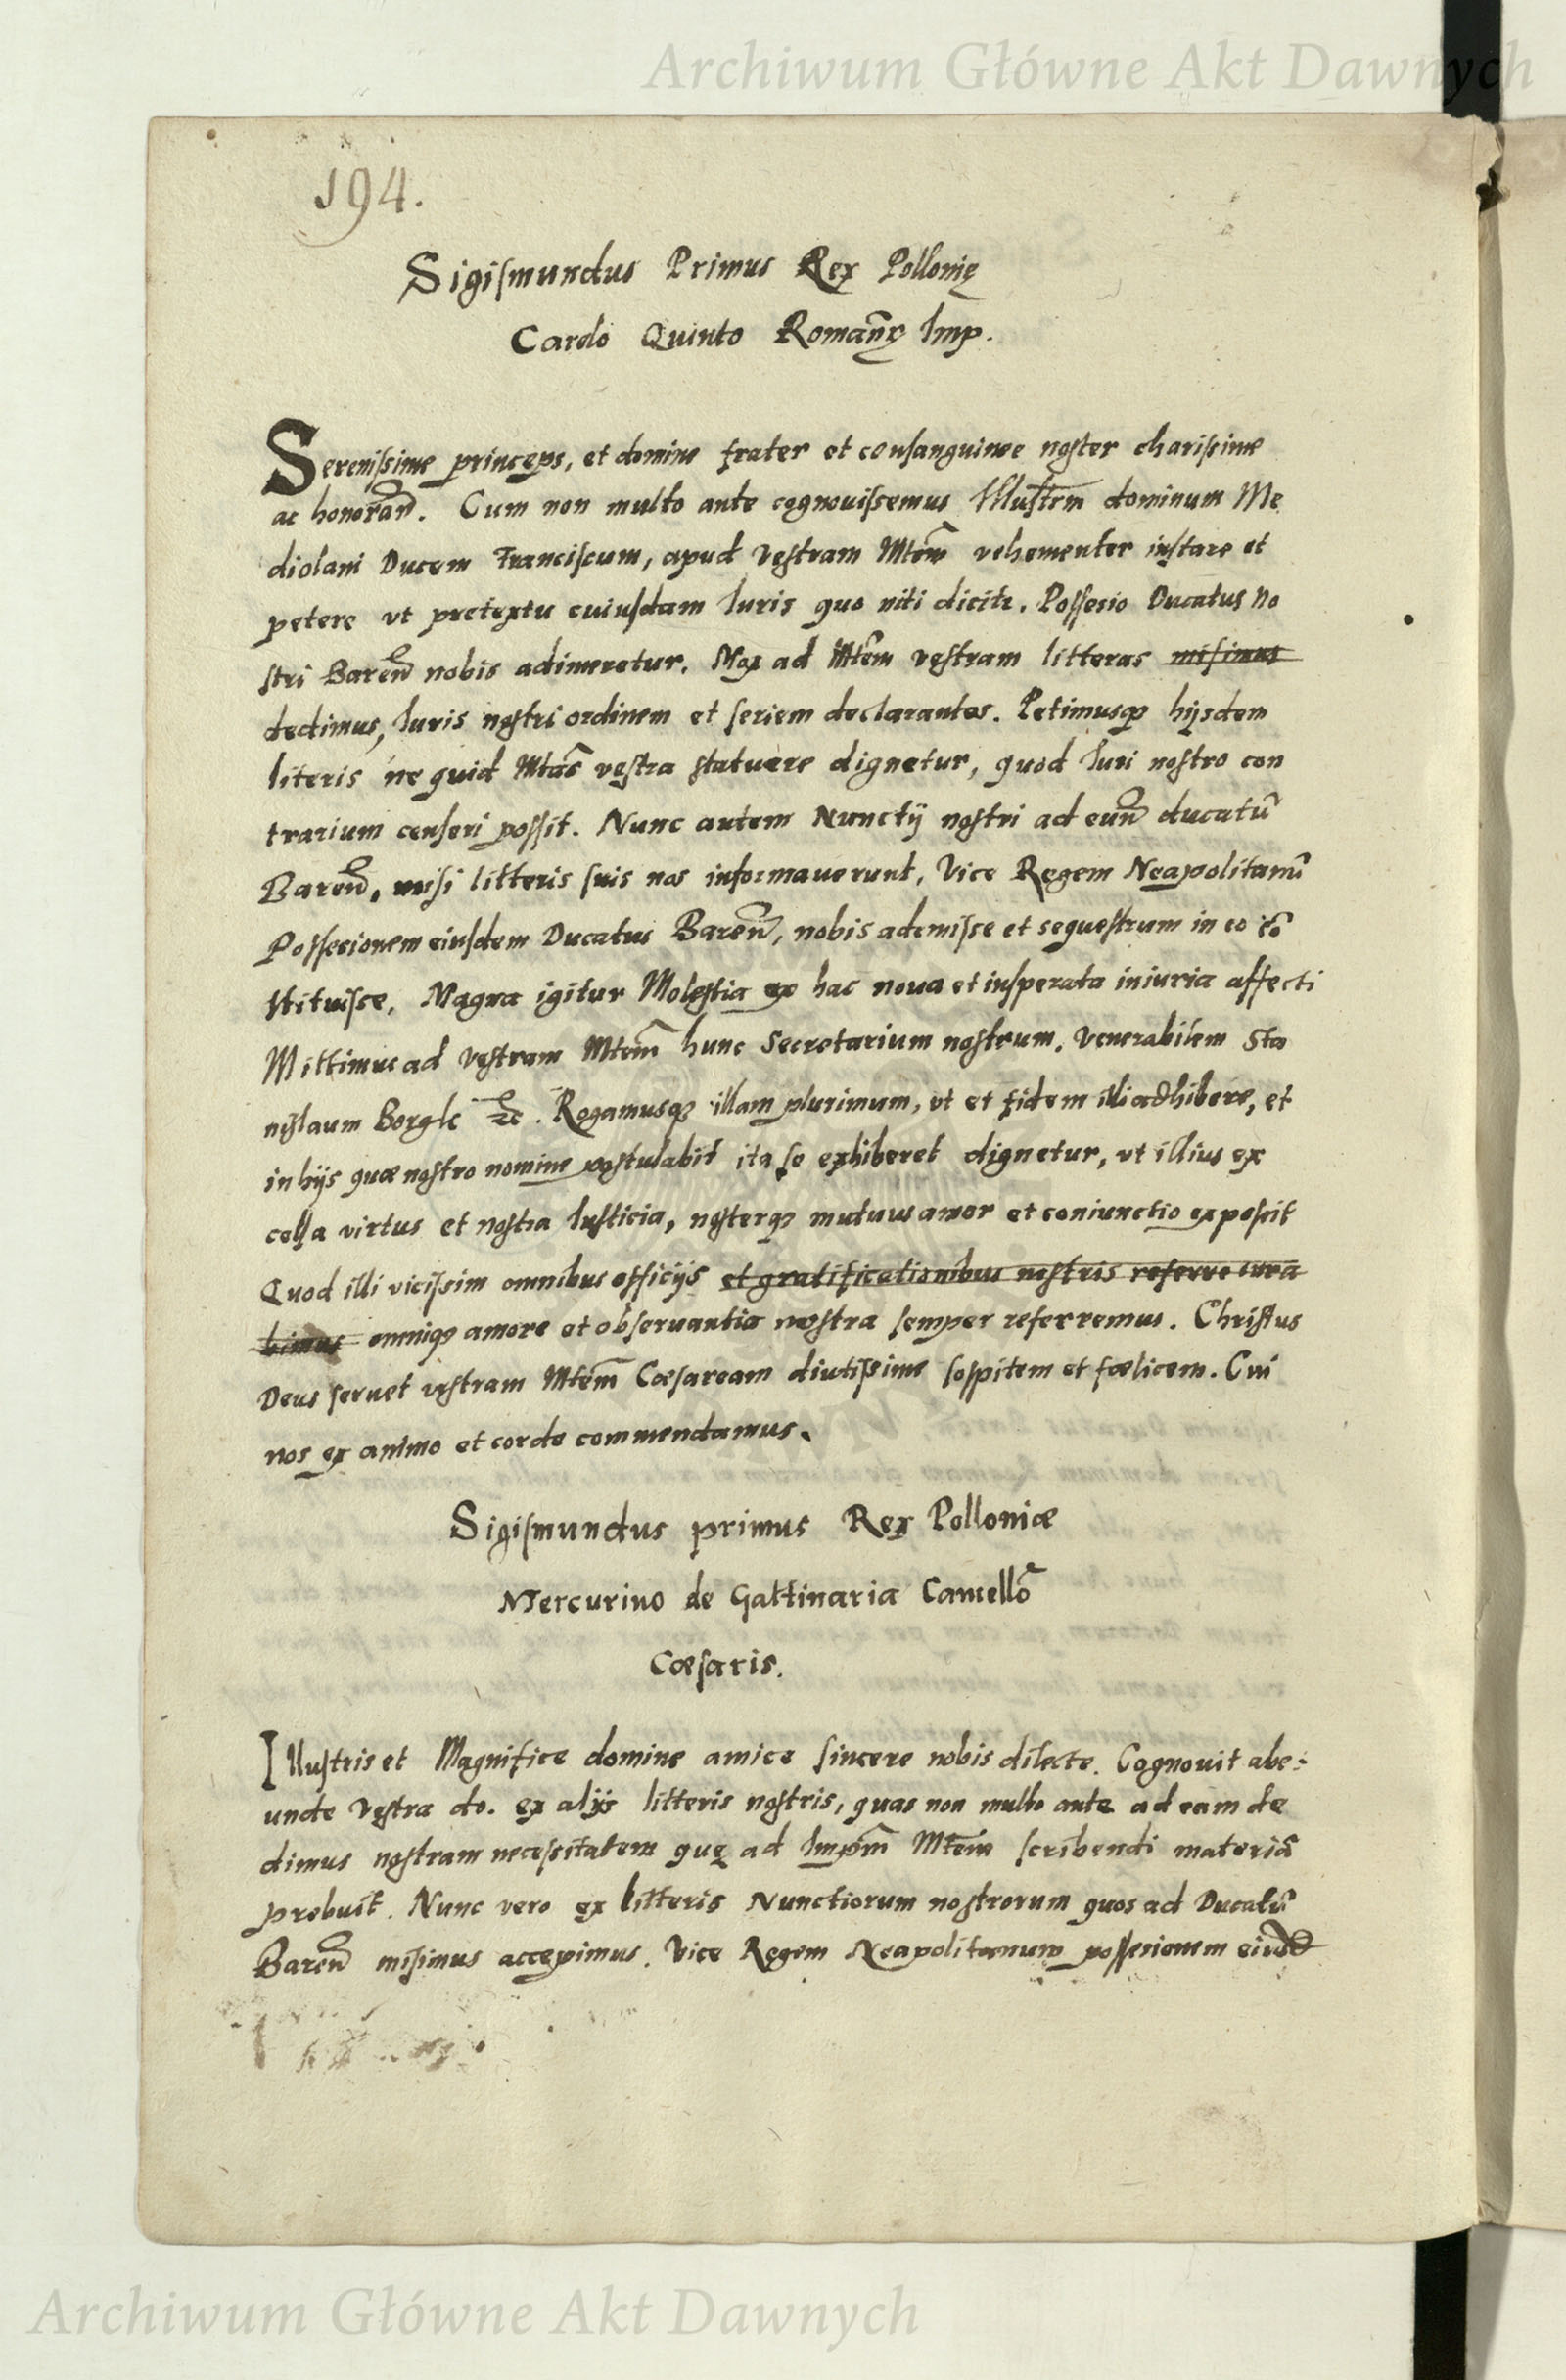 Archiwum Główne Akt Dawnych
194.
Sigismundus Primus Rex Pollonię
Carolo Quinto Romanȩ Imp.
Serenissime princeps, et domine frater et consanguinee noster charissime
ac honoran̄. Cum non multo ante cognouissemus Illustrem̄ dominum Me
diolani Ducem Franciscum, apud vestram Mtem̄ vehementer instare et
petere vt pretextu cuiusdam Iuris quo niti dicitr. Possesio Ducatus No
stri Baren̄ nobis adimeretur. Mox ad Mtem̄ vestram litteras misimus
dedimus, Iuris nostri ordinem et seriem declarantes. Petimusq; hijsdem
literis ne quid Mtas̄ vestra statuere dignetur, quod Iuri nostro con
trarium censeri possit. Nunc autem Nunctij nostri ad eun̄ ducatū
Baren̄, misi litteris suis nos informauerunt, Vice Regem Neapolitanū
Possesionem eiusdem Ducatus Baren̄, nobis ademisse et sequestrum in eo cō
stituisce. Magna igitur Molestia ex hac noua et insperata iniuria affecti
Mittimus ad vestram Mtem̄ hunc Secretarium nostrum. Venerabilem Sta
nislaum Borgk etc. Rogamusq; illam plurimum, vt et fidem illi adhibere, et
in hijs quæ nostro nomine postulabit ita se exhiberet dignetur, vt illius ex
celsa virtus et nostra Iusticia, nosterq; mutuus amor et coniunctio exposcit
Quod illi vicissim omnibus officijs et gratificationibus nostris referre cura
bimus omniq; amore et obseruantia nostra semper referremus. Christus
Deus seruet vestram Mtem̄ Cæsaream diutissime sospitem et fœlicem. Cui
nos ex animo et corde commendamus.
Sigismundus primus Rex Polloniæ
Mercurino de Gattinaria Cancellō
Cæsaris.
Illustris et Magnifice domine amice sincere nobis dilecte. Cognouit abe:
unde Vestra do. ex alijs litteris nostris, quas non multo ante ad eam de
dimus nostram necessitatem quȩ ad Imp̄m Mtem̄ scribendi materiā
prebuit. Nunc vero ex litteris Nunctiorum nostrorum quos ad Ducatū
Baren̄ misimus accepimus. Vice Regem Neapolitanum possesionem eiusd
Archiwum Główne Akt Dawnych